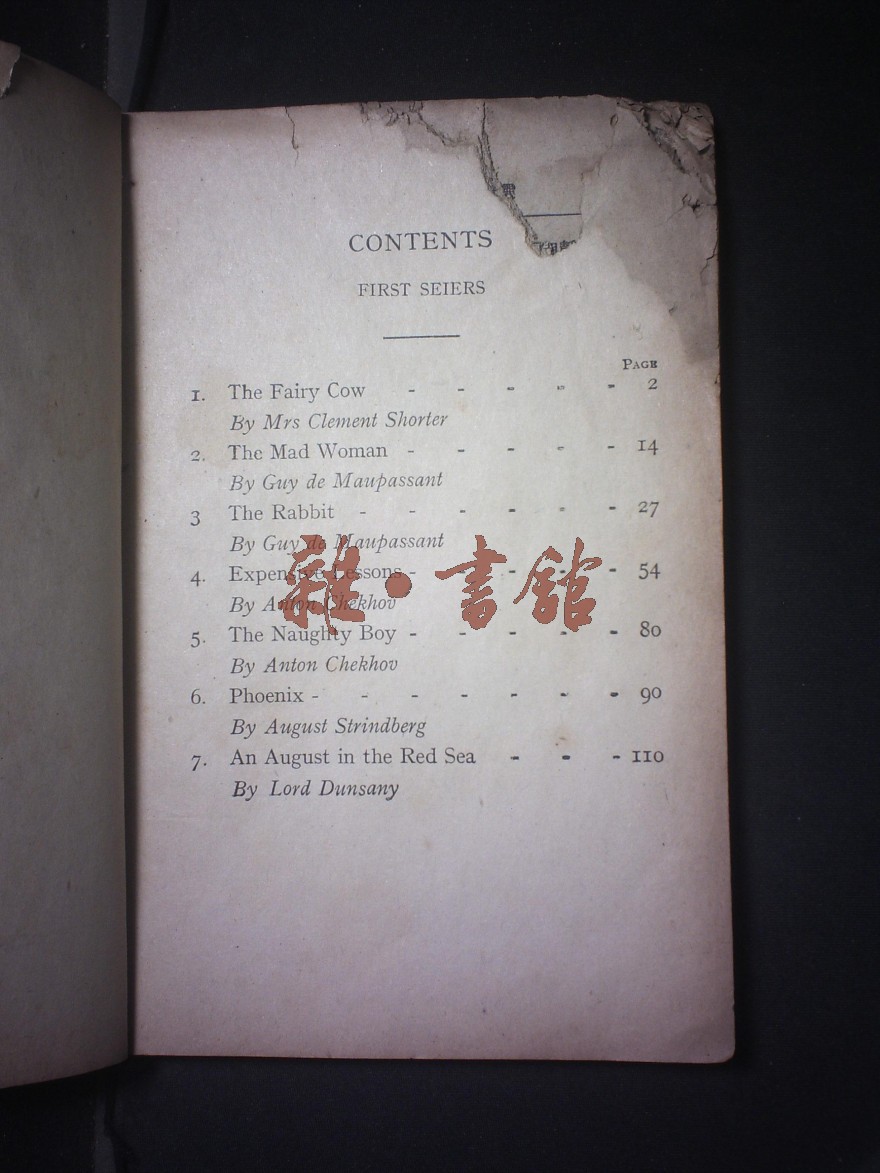 CONTENTS
FIRST SEIERS
PAGE
1. The Fairy Cow - - - - - 2
By Mrs Clement Shorter
2. The Mad Woman - - - - - 14
By Guy de Maupassant
3 The Rabbit - - - - - - 27
By Guy de Maupassant
4. Expensive Lessons - - - - - 54
By Anton Chekhov
5. The Naughty Boy - - - - - 80
By Anton Chekhov
6. Phoenix - - - - - - - 90
By August Strindberg
7. An August in the Red Sea - - - 110
By Lord Dunsany
雜·書館